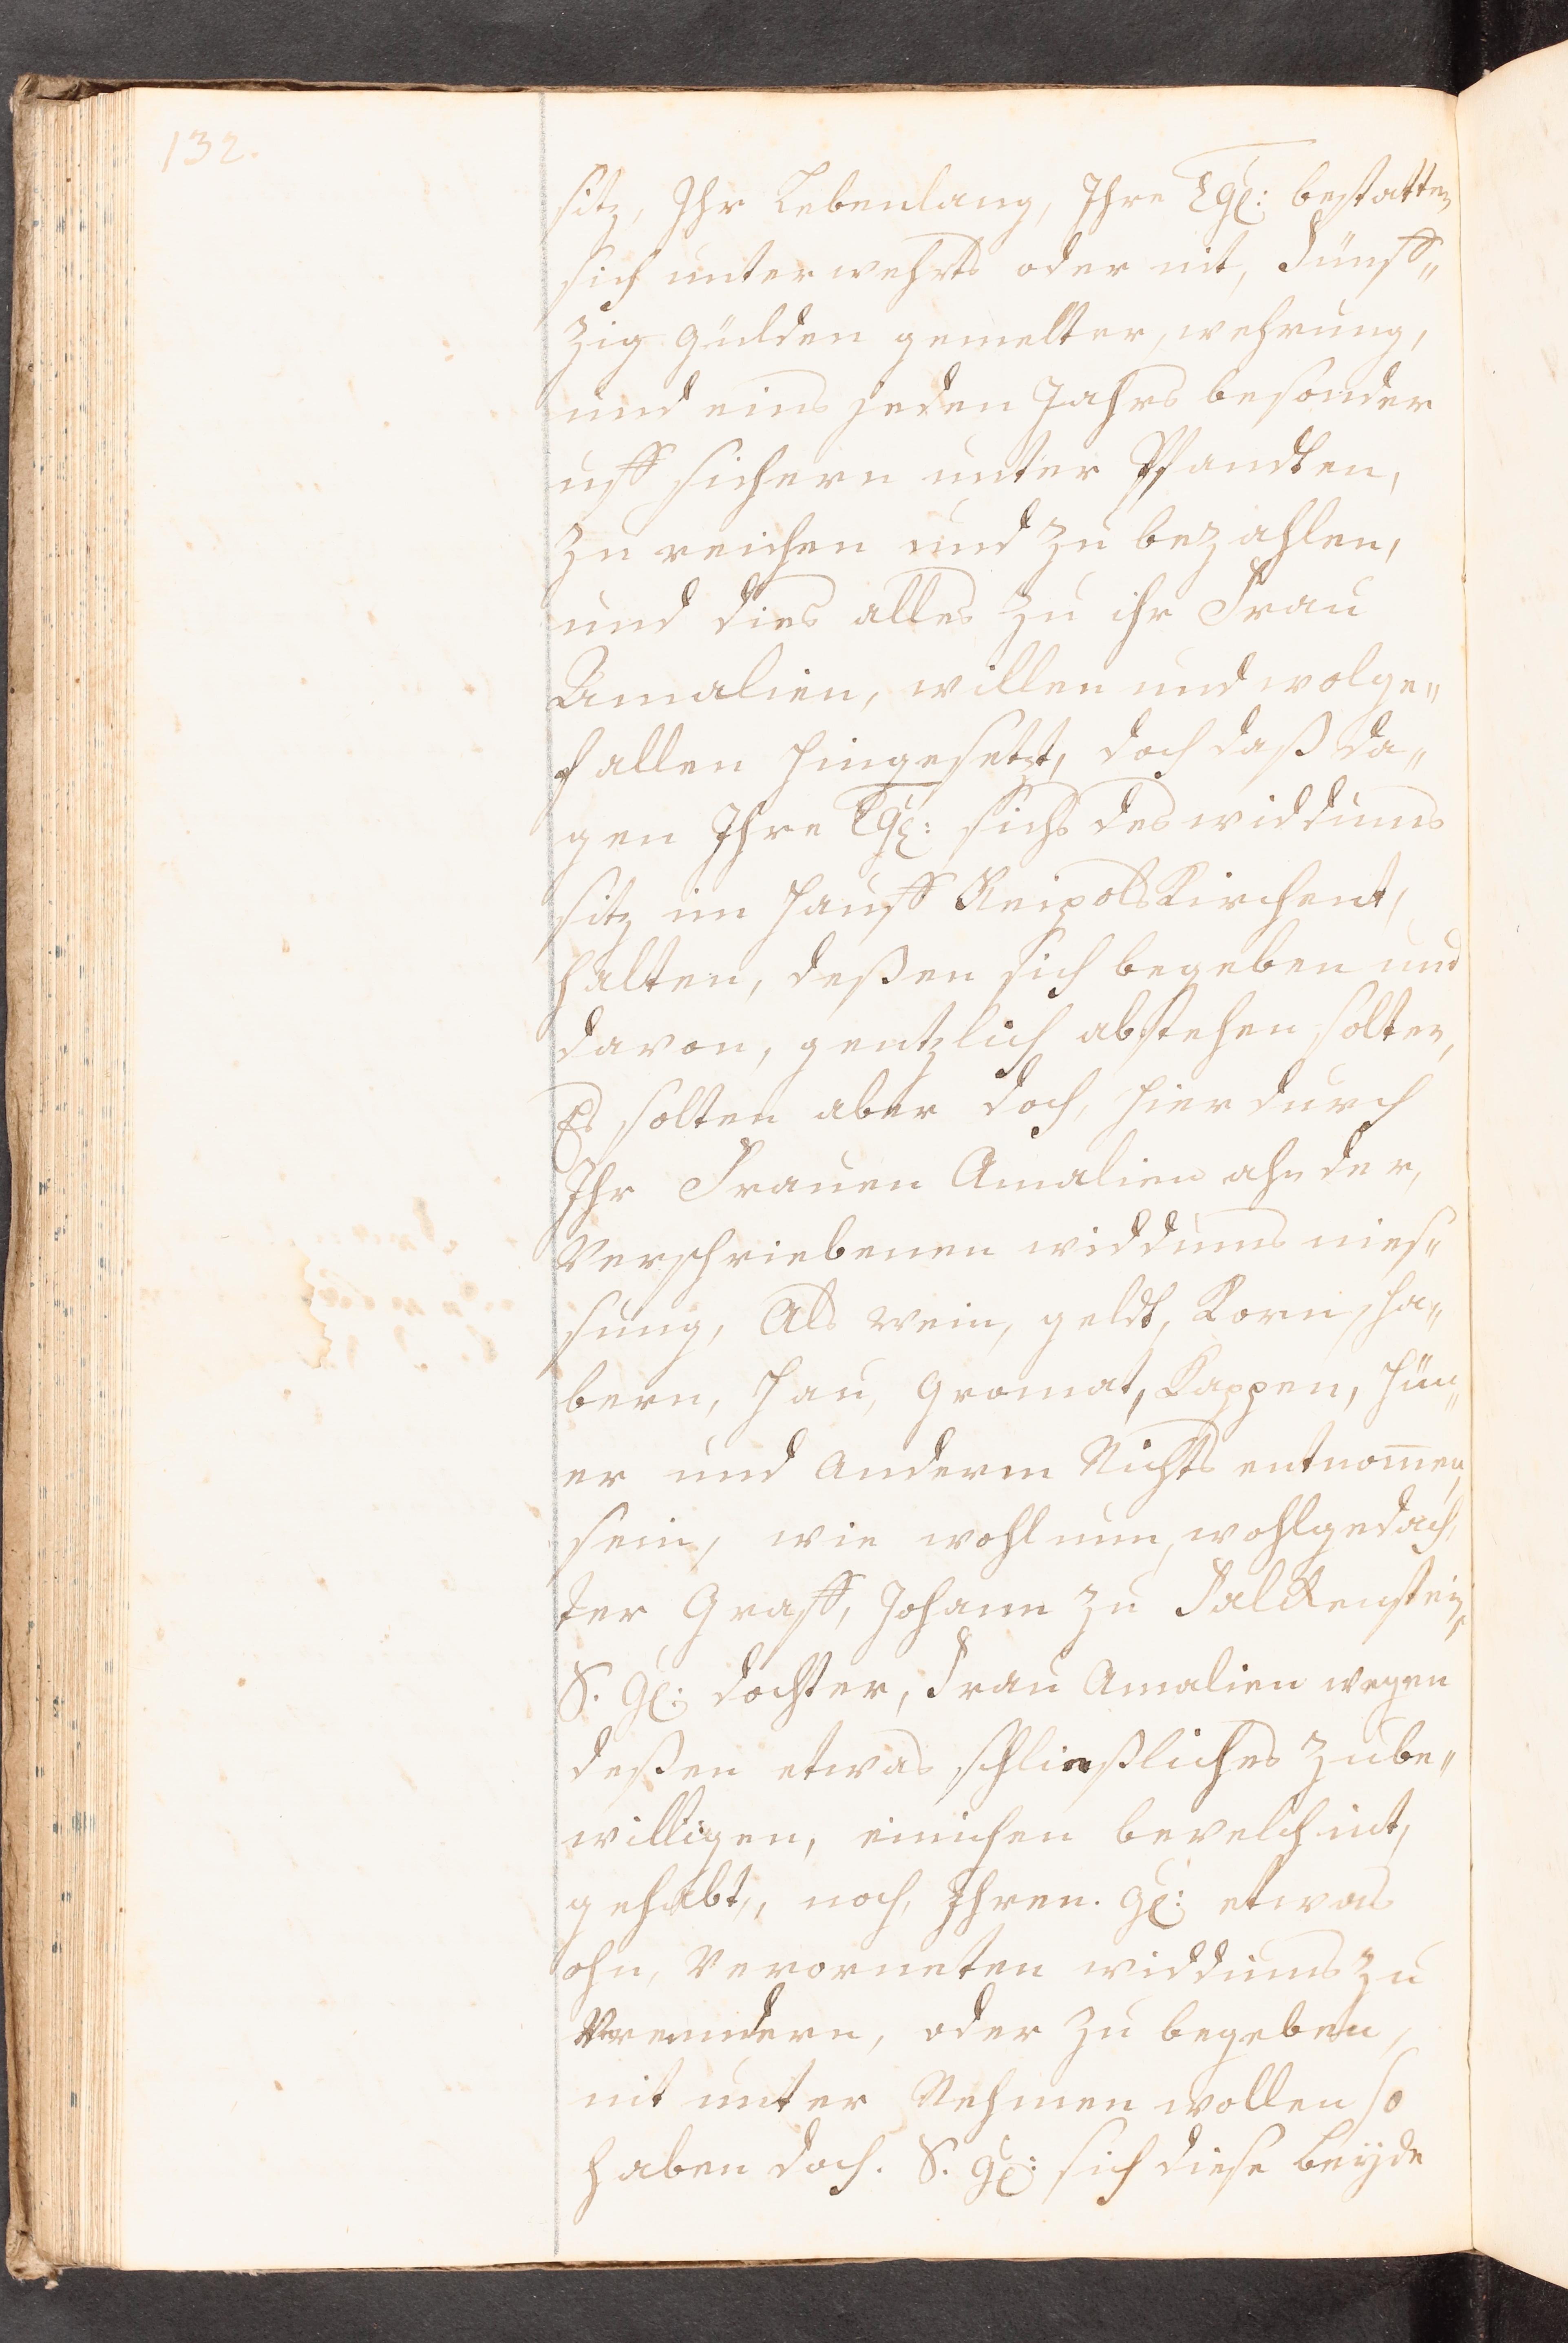 132.
sitz, Ihr Lebenlang, Ihre Lgl: bestatten
sich unterwehrts oder nit, Fünff„
zig Gülden gemelter, wehrung,
und eins jeden Jahrs besonder
uff sichern unter Pfandten,
zu reichen und zu bezahlen,
und dies alles zu ihr Frau
Amalien, willen und wolge„
fallen hingesetzt, doch daß da„
gen Ihre Lgl: sichs des widdums
sitz im Hauß Reipolskirchent,
halten, deßen sich begeben und
davon, gentzlich abstehen, solten,
Es solten aber doch, hierdurch
Ihr Frauen Amalien ahn der,
Verschriebenen widdums nies„
sung, Als wein, geldt, Korn, ha„
bern, Hau, Gromat, Cappen, Hün„
er und Anderm Nichts entnommen,
sein, wie wohl nun, wohlgedach„
ter Graff, Johann zu Falckenstein,
S. Gl: dochter, Frau Amalien wegen
deßen etwas schließliches zube„
willigen, einichen bevelch nit,
gehabt, noch, Ihren. Gl: etwas
ahn, Verorneten widdums zu
Verendern, oder zu begeben,
nit unter Nehmen wollen so
haben doch. S. Gl: sich diese beyde